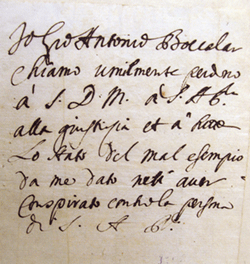 Io Gio Antonio Boccaler
chiamo umilmente perdono
à S. D. M. à S. A. S.
alla giustitia et à
Lo stato del mal esempio
da me dato nell aver
conspirato contro la persona
di S. A. S.